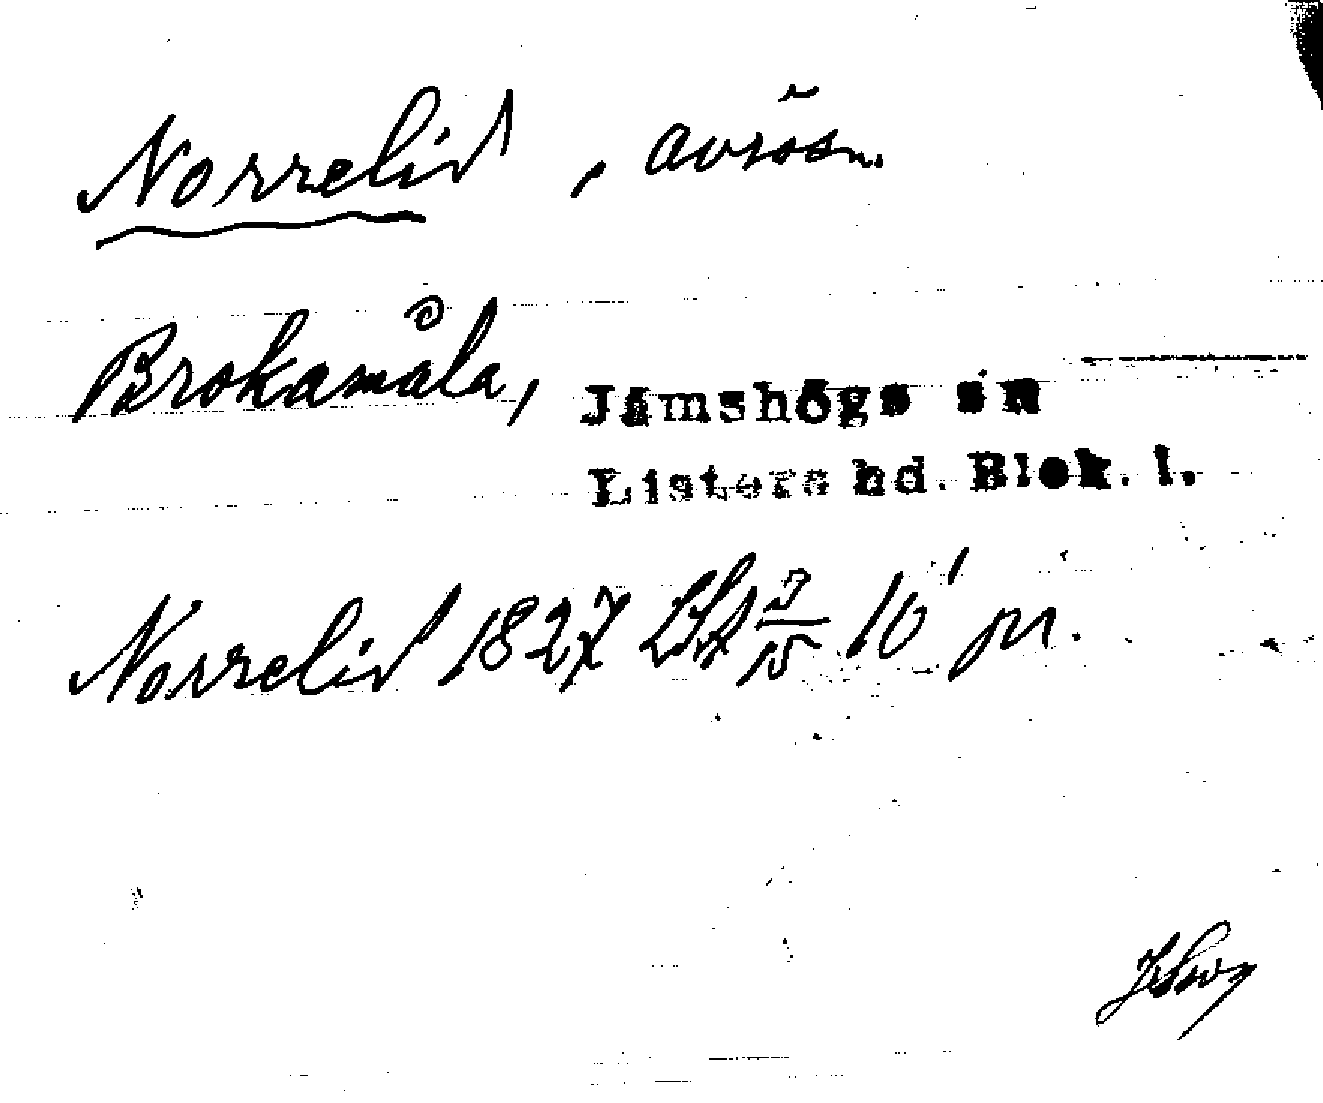 Norrelid, avsösn.
Brokamåla, Jämshögs sn
Listers hd. Blek. l.
Norrelid 1827 LSA 7/15 10' pr.